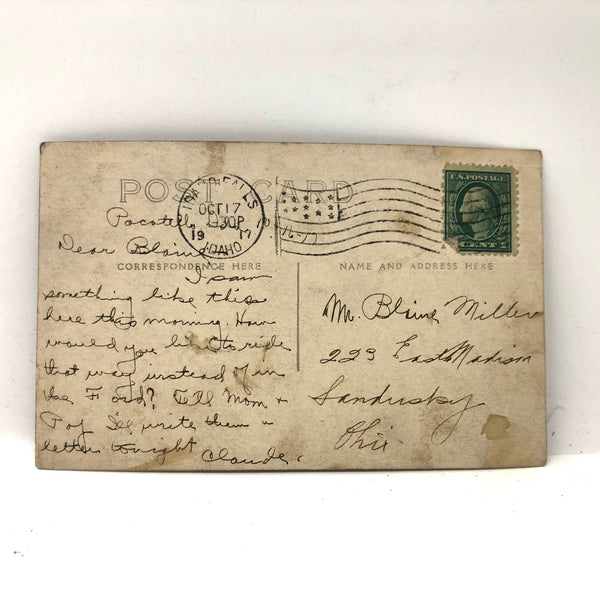 POST CARD
IDAHO FALLS
OCT 17
30P
19 17
IDAHO
U.S. POSTAGE
CENT
Pocatello
Dear Blaine
CORRESPONDENCE HERE
NAME AND ADDRESS HERE
I saw
something like this
here this morning. How
would you like to ride
that way instead of in
the Ford? Tell Mom &
Pop I'll write them a
letter tonight
Claude.
Mr. Blaine Miller
223 East Madison
Sandusky
Ohio.